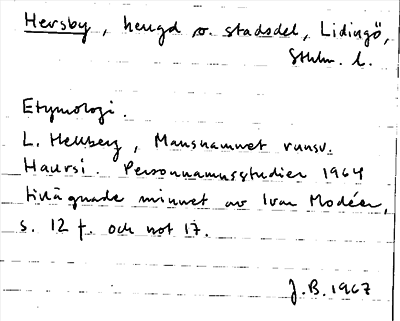 Hersby, herrgd o. stadsdel, Lidingö,
Sthlm. l.
Etymologi.
L. Hellberg, Mansnamnet runsv.
Haursi. Personnamnsstudier 1964
tillägnade minnet av Ivar Modéer,
s. 12 f. och not 17.
J.B. 1967